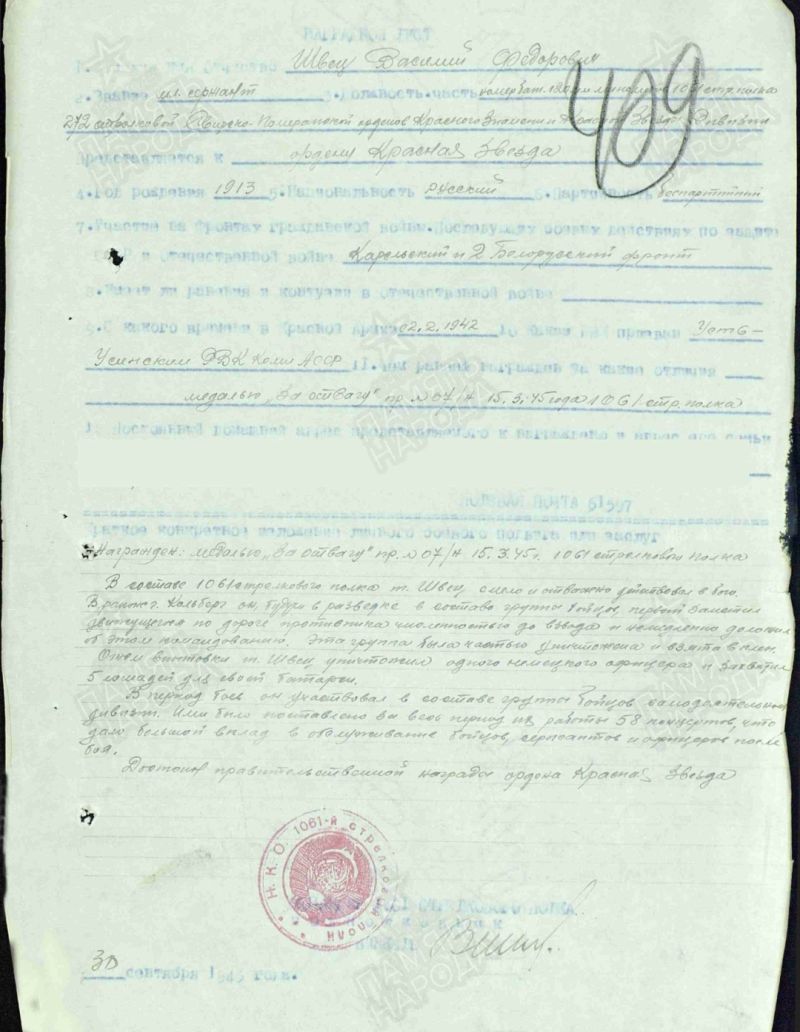 НАГРАДНОЙ ЛИСТ
1. Фамилия Имя Отчество Швец Василий Федорович
2. Звание мл. сержант 3. Должность, часть 120 мм минометов 1061 стр. полка
409
272 стрелковой Свирско-Померанской орденов Красного Знамени и Красной Звезды Дивизии
Представляется к ордену Красная Звезда
4. Год рождения 1913 5. Национальность русский 6. Партийность беспартийный
7. Участие на фронтах гражданской войны. Последующих боевых действиях по защите
СССР и отечественной войне Карельский и 2 Белорусский фронт
8. Имеет ли ранения и контузии в отечественной войне
9. С какого времени в Красной армии 02.2.1942 10 Каким РВК призван Усть-
Усинским РВК Коми АССР 11. Чем ранее награжден за какие отличия
медалью „За отвагу" пр. №07/н 15.3.45 года 1061 стр. полка
1 Постоянный домашний адрес представляемого к награждению и адрес его семьи
ПОЛЕВАЯ ПОЧТА 61597
Краткое конкретное изложение личного боевого подвига или заслуг
Награжден: медалью „За отвагу" пр. №07/н 15.3.45 г. 1061 стрелкового полка
В составе 1061 стрелкового полка т. Швец, смело и отважно действовал в бою.
В районе г. Кольберг он, будучи в разведке в составе группы бойцов, первый заметил
движущегося по дороге противника численностью до взвода и немедленно доложил
об этом командованию. Эта группа была частью уничтожена и взята в плен.
Огнем винтовки т. Швец уничтожил одного немецкого офицера и захватил
5 лошадей для своей батареи.
В период боев он участвовал в составе группы бойцов самодеятельности
дивизии. Ими было поставлено за весь период их работы 58 концертов, что
дало большой вклад в обслуживание бойцов, сержантов и офицеров после
боя.
Достоин правительственной награды ордена Красная Звезда
Н.К.О. 1061-й стрелковый полк
1061 СТРЕЛКОВОГО ПОЛКА
30 сентября 1945 года.
ПАМЯТЬ НАРОДА